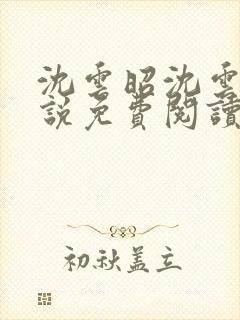 沈雲昭沈雲
說免費閱讀
初秋蓋立